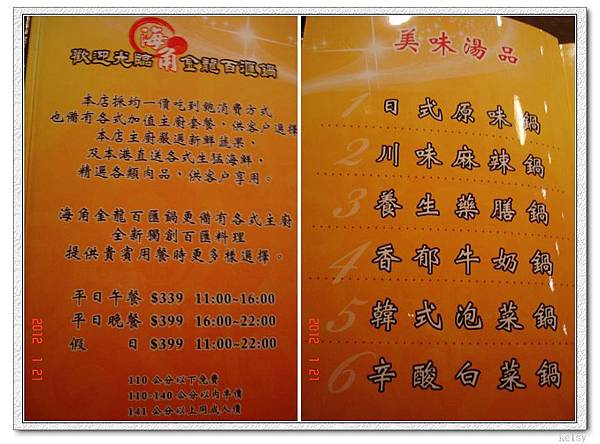 歡迎光臨 海角 金龍百匯鍋
本店採均一價吃到飽消費方式
也備有各式加值主廚套餐，供客戶選擇
本店主廚嚴選新鮮蔬果，
及本港直送各式生猛海鮮，
精選各類肉品，供客戶享用。
海角金龍百匯鍋更備有各式主廚
全新獨創百匯料理
提供貴賓用餐時更多樣選擇。
平日午餐 $339 11:00~16:00
平日晚餐 $399 16:00~22:00
假　　日 $399 11:00~22:00
110 公分以下免費
110-140 公分以內半價
141 公分以上同成人價
2012 1 21
美味湯品
1 日式原味鍋
2 川味麻辣鍋
3 養生藥膳鍋
4 香郁牛奶鍋
5 韓式泡菜鍋
6 辛酸白菜鍋
2012 1 21
Kelsy